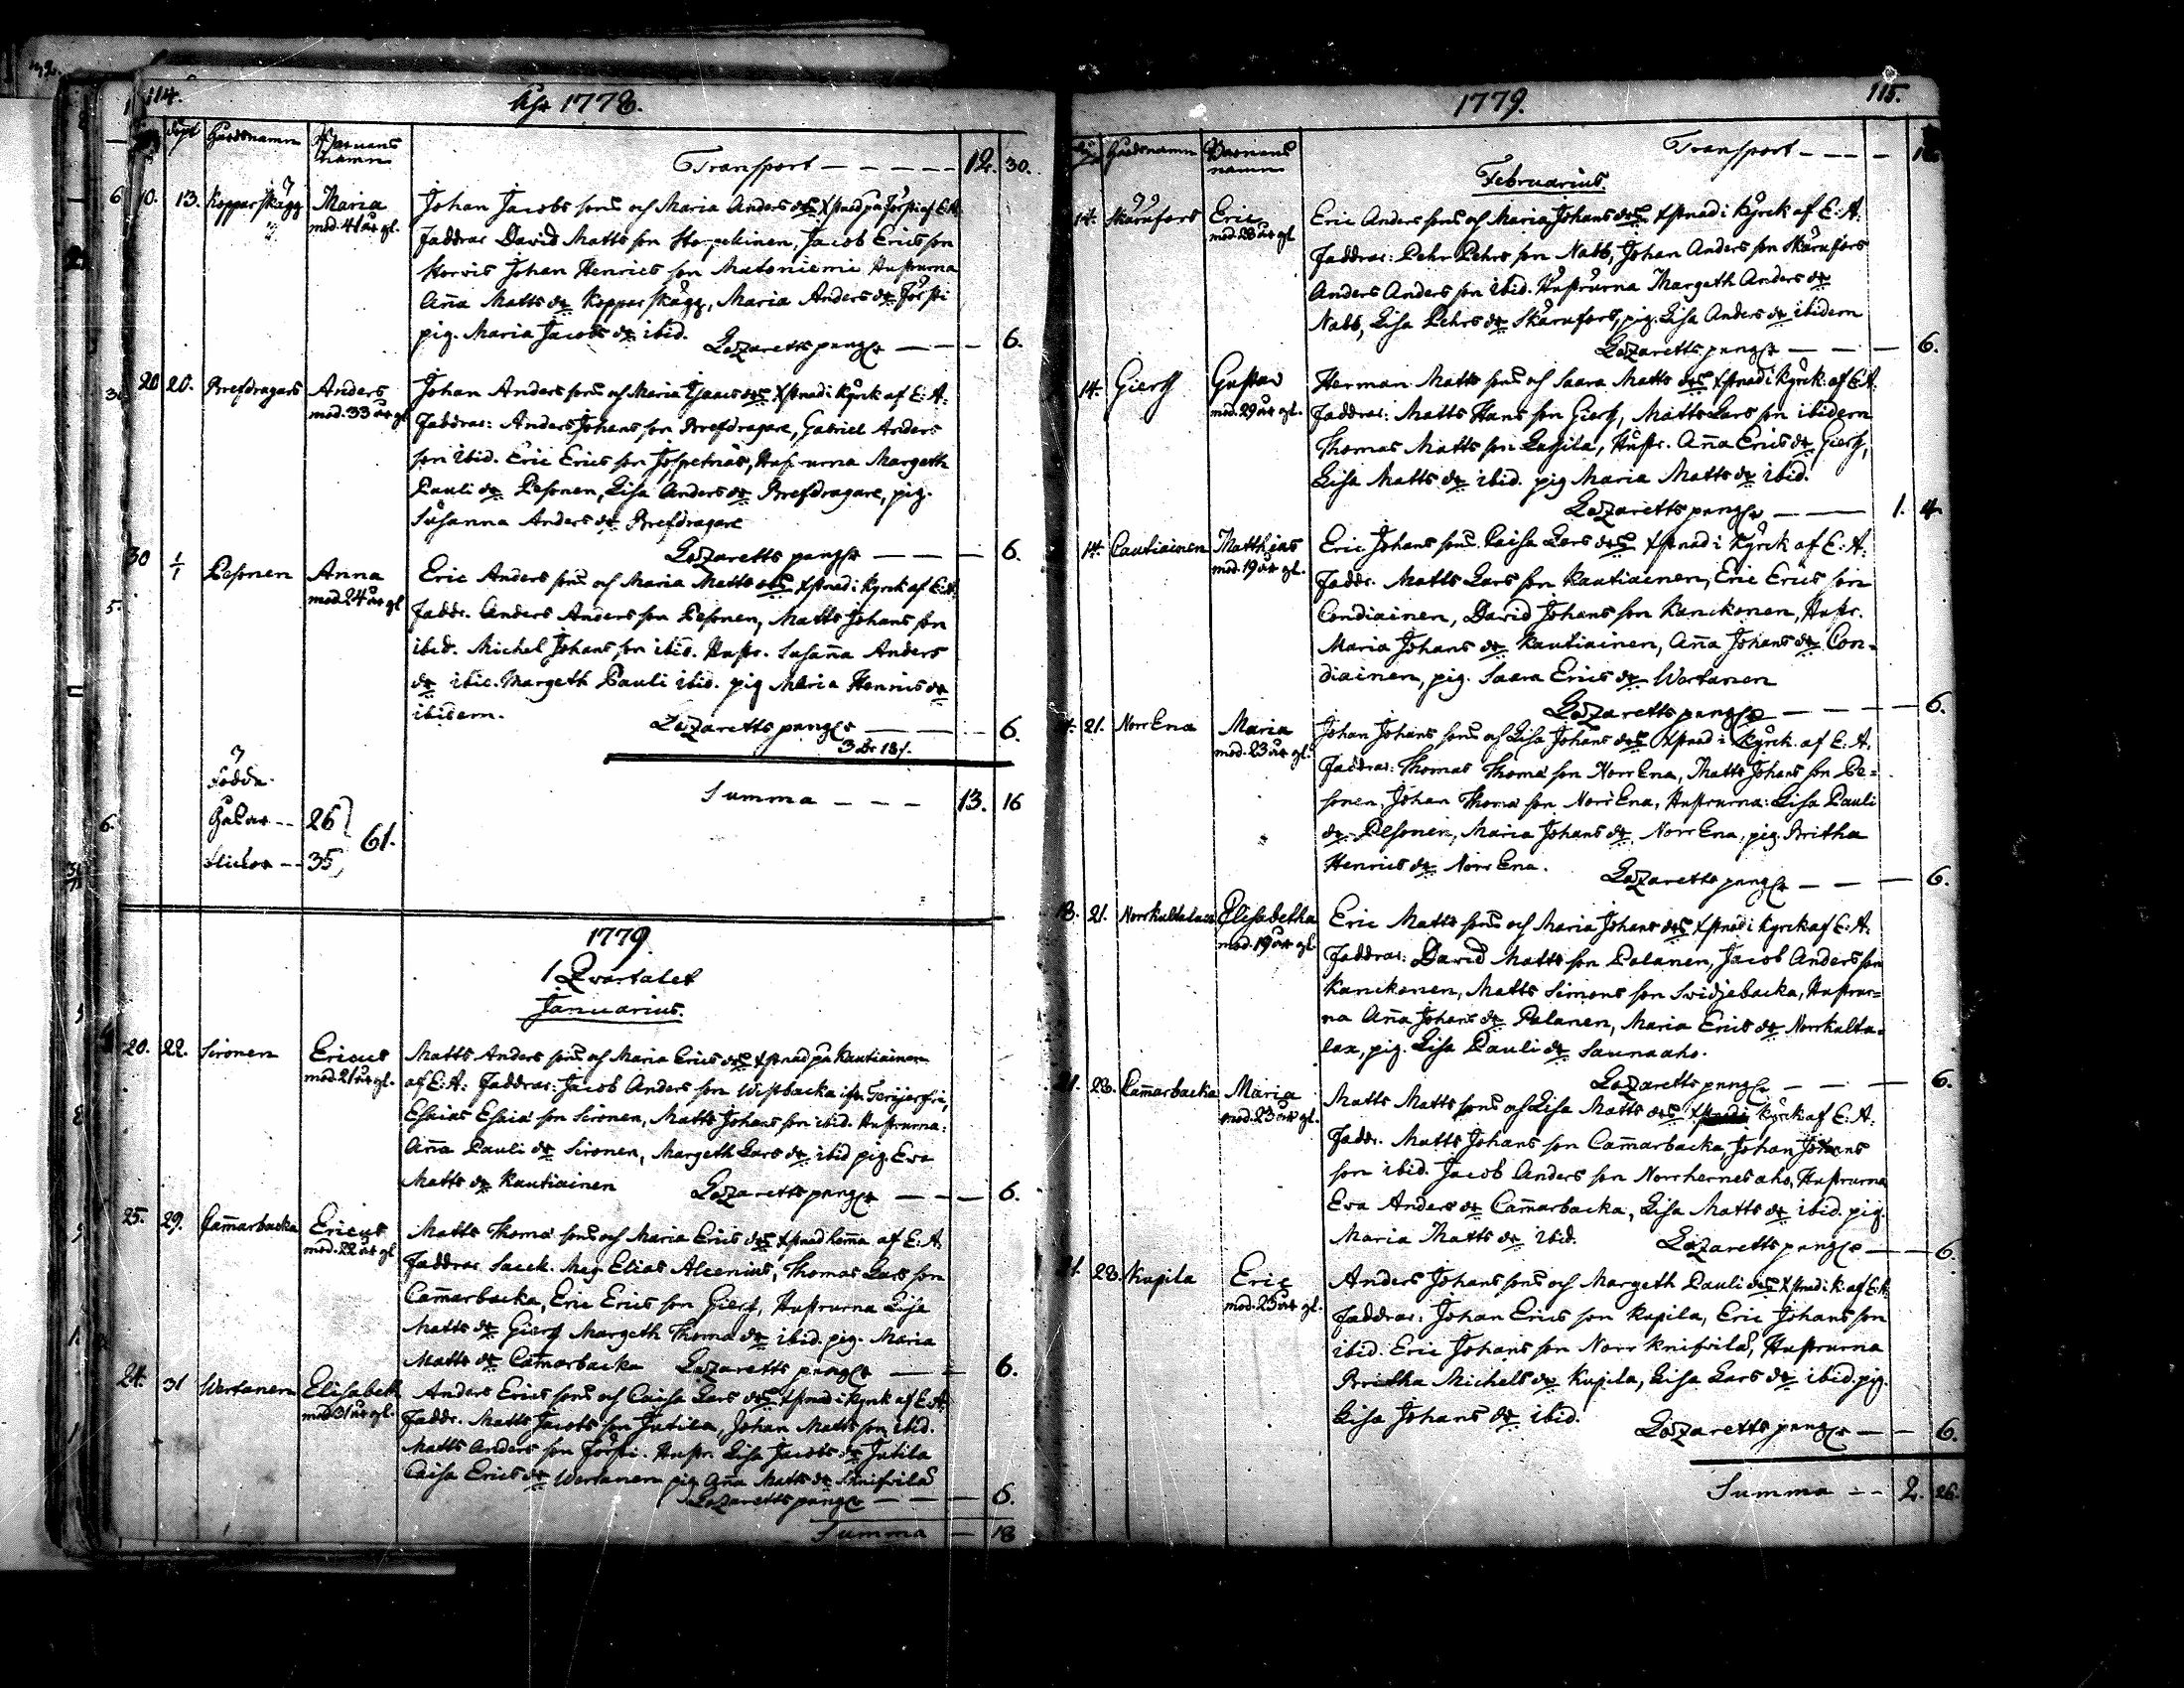 114.
Åhr 1778.
döpt Gårdsnamn Barnens namn
Transport — — — — — 12. 30.
10. 13. Kopparskägg Maria Johan Jacobs son och Maria Anders dr Xstnad på Jörsti af E:A:
mod. 41 år gl.
Faddrar David Matts son Storpekinen, Jacob Erics son
Korvis Johan Henrics son Matoniemi Hustrurna
Aña Matts dr Kopparskägg, Maria Anders dr Jörsti
pig. Maria Jacobs dr ibid.
Lazaretts pengar — — — 6.
20 20. Brefdragars Anders Johan Anders son och Maria Isaacs dr Xstnad i Kyrck af E:A:
mod. 33 år gl.
Faddrar: Anders Johans son Brefdragare, Gabriel Anders
son ibid. Eric Erics son Jospetnäs, Hustrurna Margeth
Pauli dr Pesonen, Lisa Anders dr Brefdragare, pig.
Susanna Anders dr Brefdragare
Lazaretts pengar — — — 6.
30 1/1 Pesonen Anna Eric Anders son och Maria Matts dr Xstnad i Kyrck af E:A:
mod. 24 år gl
Faddr. Anders Anders son Pesonen, Matts Johans son
ibid. Michel Johans son ibid. Hustr. Susaña Anders
dr ibid. Margeth Pauli ibid. pig Maria Henrics dr
ibidem.
Lazaretts pengar — — — 6.
3 dr 18 /.
Summa — — — 13. 16
Födde
Gåssar -- 26
61.
Flickor -- 35
1779
1 Qvartalet
Januarius.
20. 22. Sironen Ericus Matts Anders son och Maria Erics dr Xstnad på Kautiainen
mod. 21 år gl.
af E:A: Faddrar: Jacob Anders son Westbacka ifr.
Esaias Esaiæ son Sironen, Matts Johans son ibid. Hustrurna:
Aña Pauli dr Sironen, Margeth Lars dr ibid pig. Eva
Matts dr Kautiainen
Lazaretts pengar — — — 6.
25. 29. Cam̃arbacka Ericus Matts Thomæ son och Maria Erics dr Xstnad hem̃a af E:A:
mod. 22 år gl
Faddrar Sacell. Mag Elias Alcenius, Thomas Lars son
Cam̃arbacka, Eric Erics son Giers, Hustrurna Lisa
Matts dr Giers Margeth Thomæ dr ibid. pig. Maria
Matts dr Cam̃arbacka
Lazaretts pengar — — 6.
24. 31 Wertanen Elisabeth Anders Erics son och Caisa Lars dr Xstnad i Kyrck af E:A:
mod 31 år gl.
Faddr. Matts Jacobs son Jutila, Johan Matts son ibid.
Matts Anders son Jörsti. Hustr. Lisa Jacobs dr Jutila
Caisa Erics dr Wertanen pig Aña Matts dr Knifsilä
Lazaretts pengar — — — 6.
Summa — 18
115.
1779.
Gårdsnamn Barnens namn
Transport — — — —
Februarius.
14. Skärnfors Eric Eric Anders son och Maria Johans dr Xstnad i Kyrck af E:A:
mod. 28 år gl
Faddrar: Pehr Pehrs son Nabb, Johan Anders son Skärnfors
Anders Anders son ibid. Hustrurna Margeth Anders dr
Nabb, Lisa Pehrs dr Skärnfors, pig. Lisa Anders dr ibidem
Lazaretts pengar — — — 6.
14. Giers Gustav Herman Matts son och Saara Matts dr Xstnad i Kyrck. af E:A.
mod. 29 år gl.
Faddrar: Matts Hans son Giers, Matts Lars son ibidem
Thomas Matts son Lassila, Hustr. Aña Erics dr Giers,
Lisa Matts dr ibid. pig Maria Matts dr ibid.
Lazaretts pengar — — 1. 4.
14. Cautiainen Matthias Eric Johans son Caisa Lars dr Xstnad i Kyrck af E:A:
mod. 19 år gl.
Faddr. Matts Lars son Kautiainen, Eric Erics son
Condiainen, David Johans son Kanckonen, Hustr.
Maria Johans dr Kautiainen, Aña Johans dr Con=
diainen, pig. Saara Erics dr Wertanen
Lazaretts pengar — — — 6.
21. Norr Ena Maria Johan Johans son och Lisa Johans dr Xstnad i Kyrck. af E:A.
mod. 23 år gl.
Faddrar: Thomas Thomæ son Norr Ena, Matts Johans son Pe=
sonen, Johan Thomæ son Norr Ena, Hustrurna: Lisa Pauli
dr Pesonen, Maria Johans dr Norr Ena, pig. Britha
Henrics dr Norr Ena.
Lazaretts pengar — — — 6.
18. 21. Norrkaltalax Elisabetha Eric Matts son och Maria Johans dr Xstnad i Kyrck af E:A.
mod. 19 år gl.
Faddrar: David Matts son Palanen, Jacob Anders son
Kanckonen, Matts Simons son Svidjebacka, Hustrur=
na Aña Johans dr Palanen, Maria Erics dr Norrkalta=
lax, pig. Lisa Pauli dr Saunaaho.
Lazaretts pengar — — — 6.
21. 28. Cam̃arbacka Maria Matts Matts son och Lisa Matts dr Kyrck af E:A:
mod. 23 år gl.
Faddr. Matts Johans son Cam̃arbacka, Johan Johans
son ibid. Jacob Anders son Norrhernesaho, Hustrurna
Eva Anders dr Cam̃arbacka, Lisa Matts dr ibid. pig.
Maria Matts dr ibid.
Lazaretts pengar — — 6.
21. 28. Kupila Eric Anders Johans son och Margeth Pauli dr Xstnad i K. af E:A:
mod. 25 år gl.
Faddrar: Johan Erics son Kupila, Eric Johans son
ibid. Eric Johans son Norr Knifsilä, Hustrurna
Britha Michels dr Kupila, Lisa Lars dr ibid. pig.
Lisa Johans dr ibid.
Lazaretts pengar — — 6.
Summa — — 2. 26.